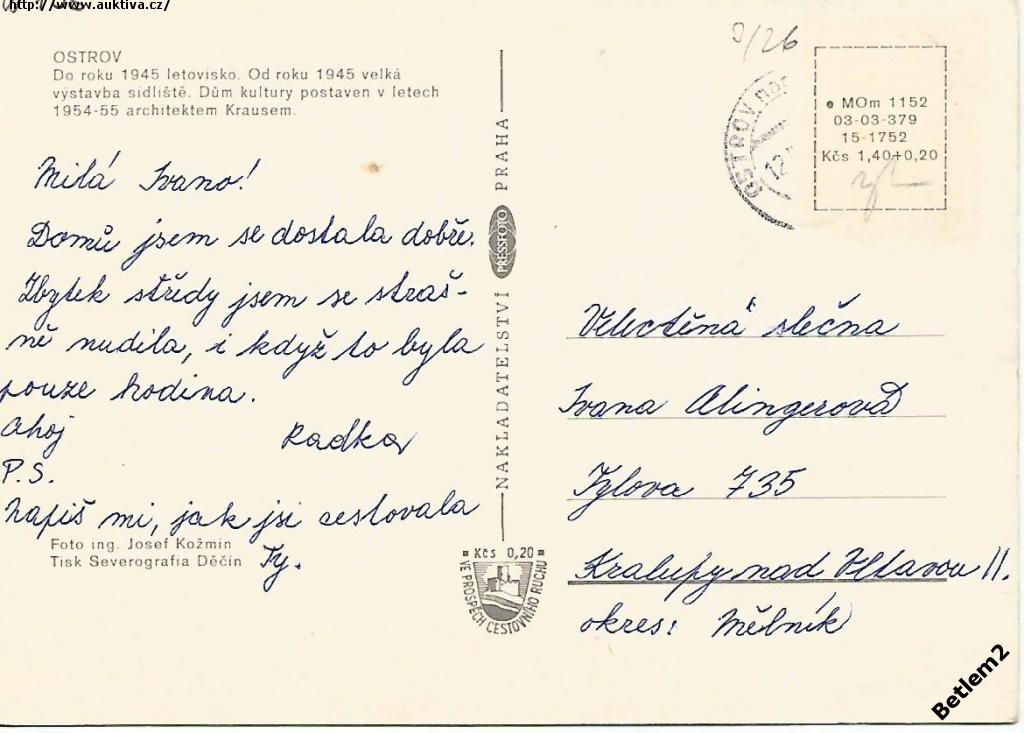 http://www.auktiva.cz/
OSTROV
Do roku 1945 letovisko. Od roku 1945 velká
výstavba sídliště. Dům kultury postaven v letech
1954-55 architektem Krausem.
Milá Ivano!
Domů jsem se dostala dobře.
Zbytek středy jsem se straš-
ně nudila, i když to byla
pouze hodina.
Ahoj
Radka
P.S.
Napiš mi, jak jsi cestovala
Ty.
Foto ing. Josef Kožmín
Tisk Severografia Děčín
NAKLADATELSTVÍ PRESSFOTO PRAHA
Kčs 0,20
VE PROSPĚCH CESTOVNÍHO RUCHU
/26
OSTROV nad
12.
MOm 1152
03-03-379
15-1752
Kčs 1,40+0,20
Velectěná slečna
Ivana Alingerová
Tylova 735
Kralupy nad Vltavou II.
okres: Mělník
Betlem2